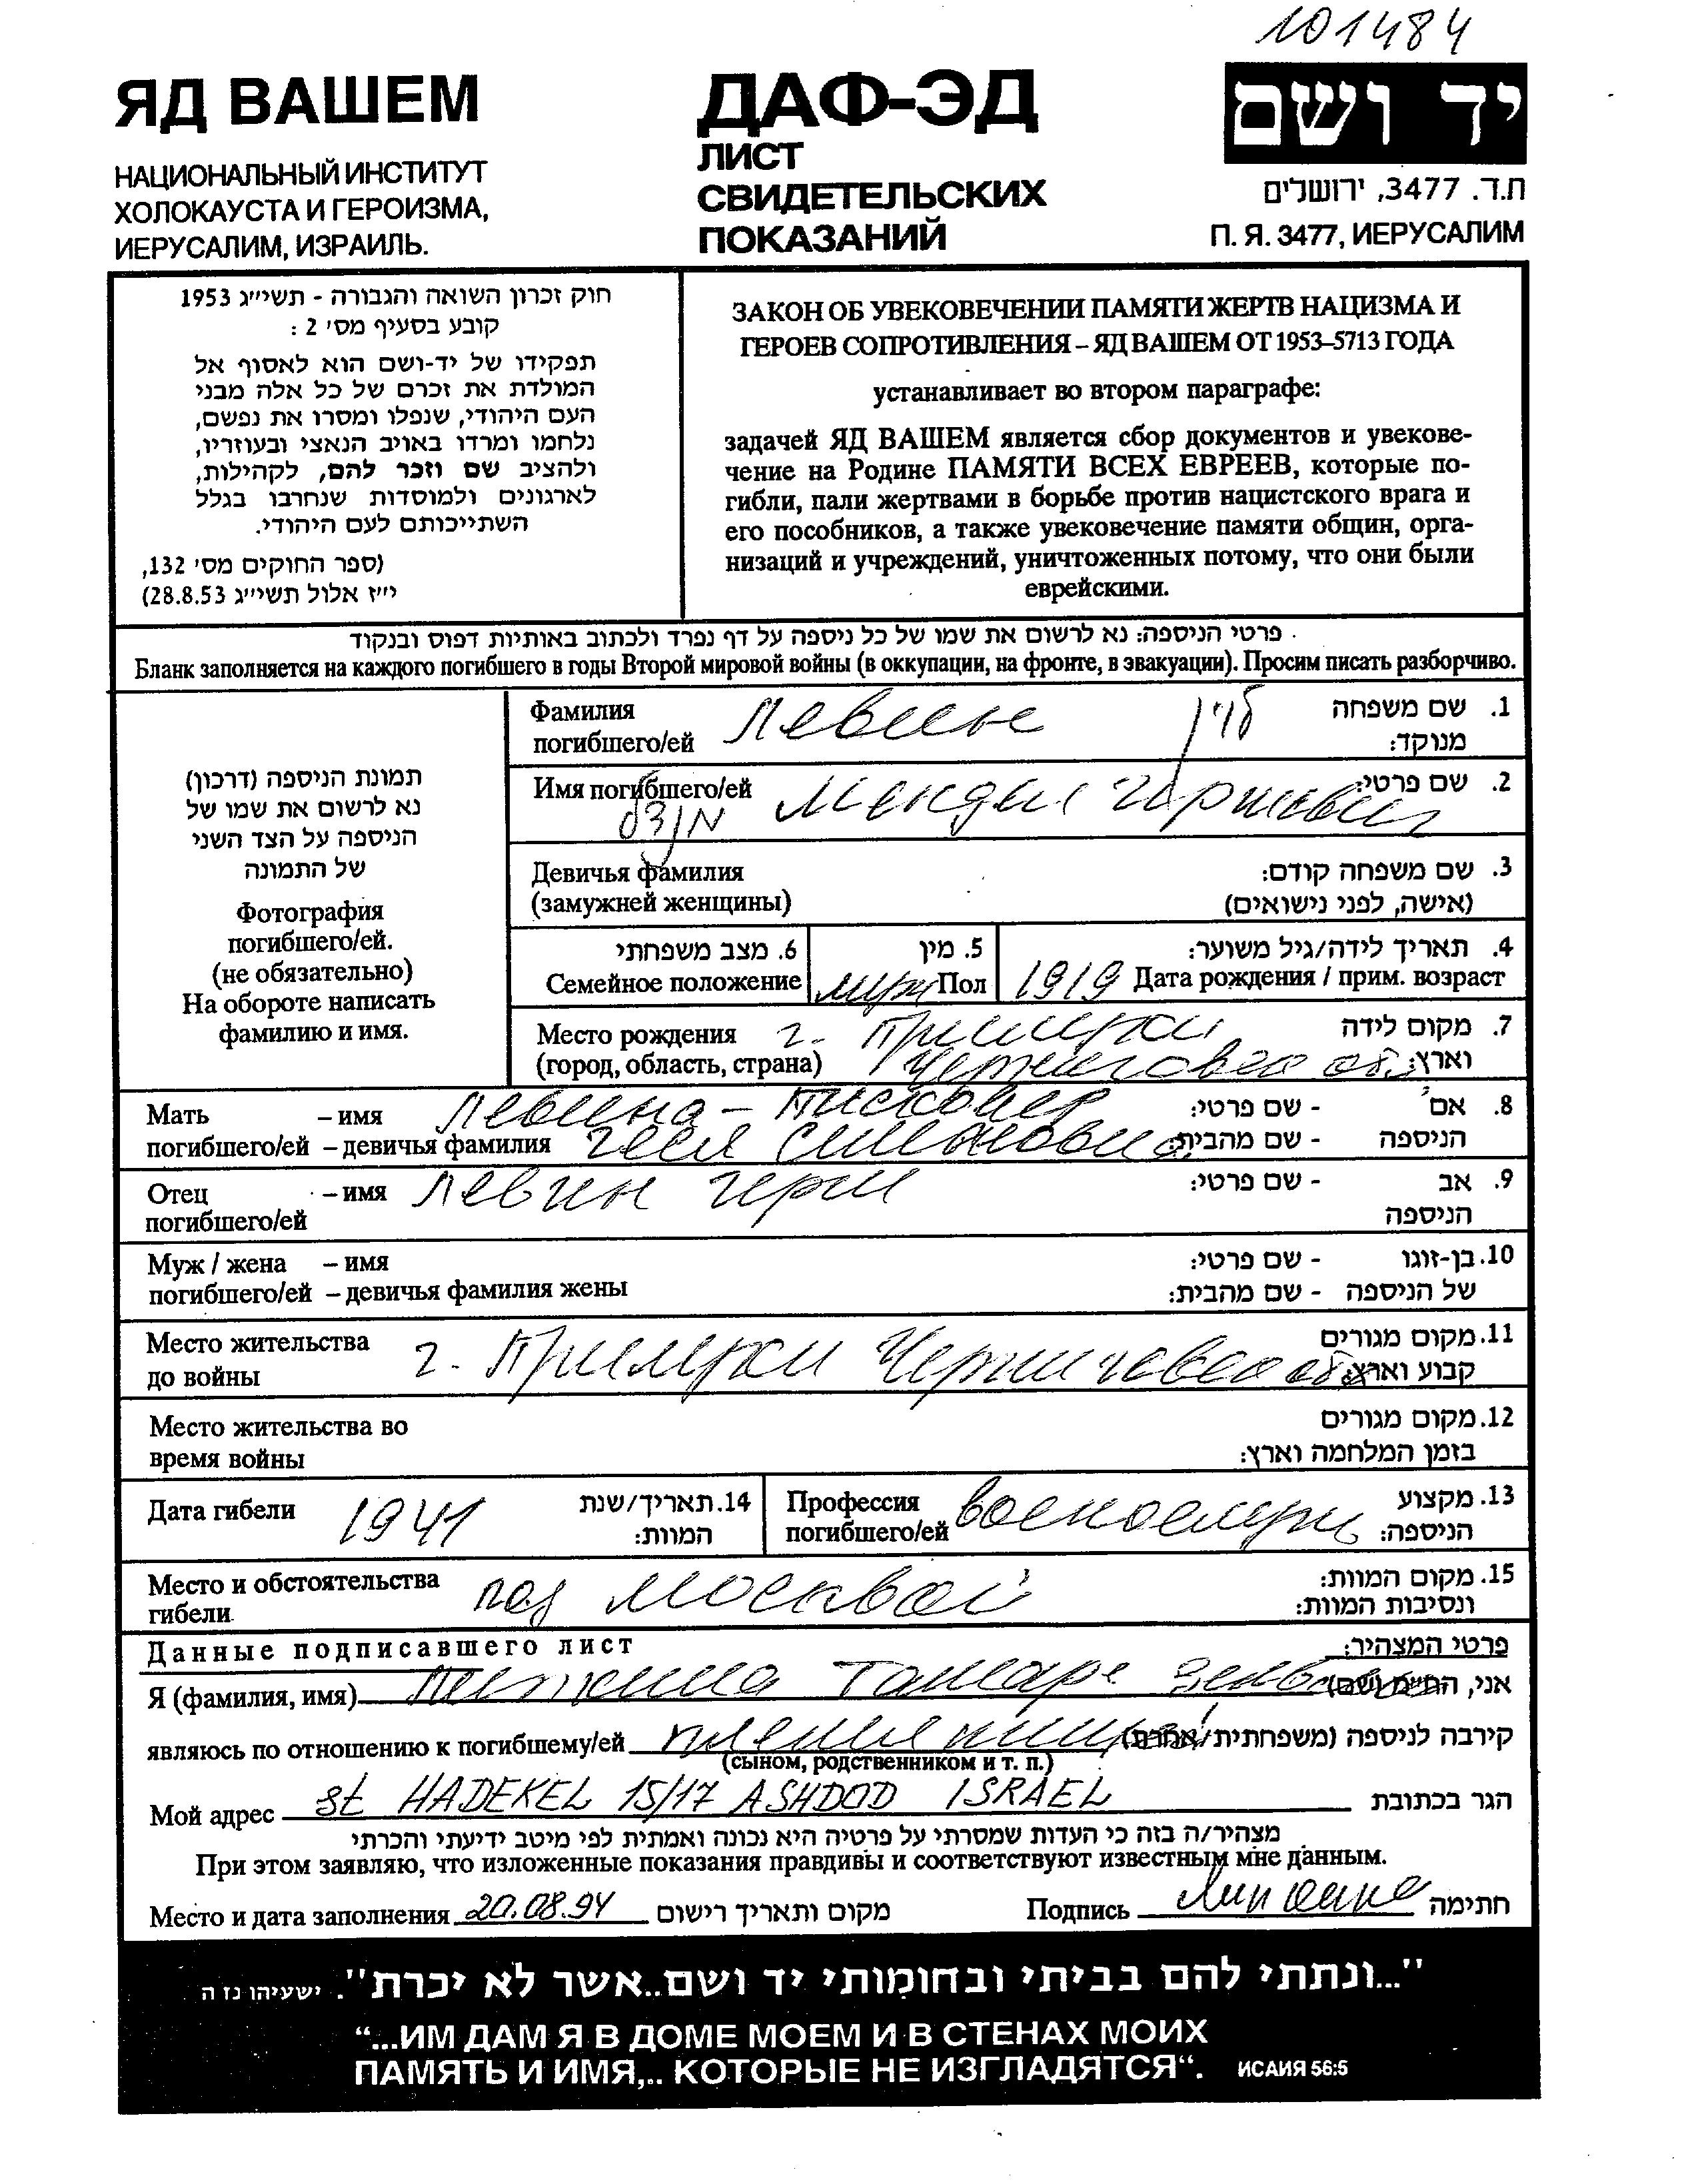 101484
ЯД ВАШЕМ
НАЦИОНАЛЬНЫЙ ИНСТИТУТ
ХОЛОКАУСТА И ГЕРОИЗМА,
ИЕРУСАЛИМ, ИЗРАИЛЬ.
ДАФ-ЭД
ЛИСТ
СВИДЕТЕЛЬСКИХ
ПОКАЗАНИЙ
יד ושם
ת.ד. 3477, ירושלים
П. Я. 3477, ИЕРУСАЛИМ
חוק זכרון השואה והגבורה - תשי״ג 1953
קובע בסעיף מס׳ 2 :
תפקידו של יד-ושם הוא לאסוף אל
המולדת את זכרם של כל אלה מבני
העם היהודי, שנפלו ומסרו את נפשם,
נלחמו ומרדו באויב הנאצי ובעוזריו,
ולהציב שם וזכר להם, לקהילות,
לארגונים ולמוסדות שנחרבו בגלל
השתייכותם לעם היהודי.
(ספר החוקים מס׳ 132,
י״ז אלול תשי״ג 28.8.53)
ЗАКОН ОБ УВЕКОВЕЧЕНИИ ПАМЯТИ ЖЕРТВ НАЦИЗМА И
ГЕРОЕВ СОПРОТИВЛЕНИЯ – ЯД ВАШЕМ ОТ 1953–5713 ГОДА
устанавливает во втором параграфе:
задачей ЯД ВАШЕМ является сбор документов и увекове-
чение на Родине ПАМЯТИ ВСЕХ ЕВРЕЕВ, которые по-
гибли, пали жертвами в борьбе против нацистского врага и
его пособников, а также увековечение памяти общин, орга-
низаций и учреждений, уничтоженных потому, что они были
еврейскими.
פרטי הניספה: נא לרשום את שמו של כל ניספה על דף נפרד ולכתוב באותיות דפוס ובנקוד
Бланк заполняется на каждого погибшего в годы Второй мировой войны (в оккупации, на фронте, в эвакуации). Просим писать разборчиво.
תמונת הניספה (דרכון)
נא לרשום את שמו של
הניספה על הצד השני
של התמונה
Фотография
погибшего/ей.
(не обязательно)
На обороте написать
фамилию и имя.
Фамилия Левин לוין 1. שם משפחה
погибшего/ей מנוקד:
Имя погибшего/ей Мендел Гершевич 2. שם פרטי:
מנדל
Девичья фамилия 3. שם משפחה קודם:
(замужней женщины) (אישה, לפני נישואים)
6. מצב משפחתי 5. מין 4. תאריך לידה/גיל משוער:
Семейное положение муж Пол 1919 Дата рождения / прим. возраст
Место рождения г. Прилуки 7. מקום לידה
(город, область, страна) Черниговск обл. וארץ:
Мать – имя Левина – 8. אם - שם פרטי:
погибшего/ей – девичья фамилия הניספה - שם מהבית:
Отец – имя Левин Герш 9. אב - שם פרטי:
погибшего/ей הניספה
Муж / жена – имя 10. בן-זוגו - שם פרטי:
погибшего/ей – девичья фамилия жены של הניספה - שם מהבית:
Место жительства г. Прилуки Черниговск обл 11. מקום מגורים
до войны קבוע וארץ:
Место жительства во 12. מקום מגורים
время войны בזמן המלחמה וארץ:
Дата гибели 1941 14. תאריך/שנת
המוות:
Профессия военнослуж 13. מקצוע
погибшего/ей הניספה:
Место и обстоятельства под Москвой 15. מקום המוות:
гибели ונסיבות המוות:
Данные подписавшего лист פרטי המצהיר:
Я (фамилия, имя) Тамара אני, הח״מ (שם)
являюсь по отношению к погибшему/ей племянницей קירבה לניספה (משפחתית/אחרת)
(сыном, родственником и т. п.)
Мой адрес st HADEKEL 15/17 ASHDOD ISRAEL הגר בכתובת
מצהיר/ה בזה כי העדות שמסרתי על פרטיה היא נכונה ואמתית לפי מיטב ידיעתי והכרתי
При этом заявляю, что изложенные показания правдивы и соответствуют известным мне данным.
Место и дата заполнения 20.08.94 מקום ותאריך רישום Подпись חתימה
"...ונתתי להם בביתי ובחומותי יד ושם..אשר לא יכרת". ישעיהו נז ה
“...ИМ ДАМ Я В ДОМЕ МОЕМ И В СТЕНАХ МОИХ
ПАМЯТЬ И ИМЯ,.. КОТОРЫЕ НЕ ИЗГЛАДЯТСЯ“. ИСАИЯ 56:5